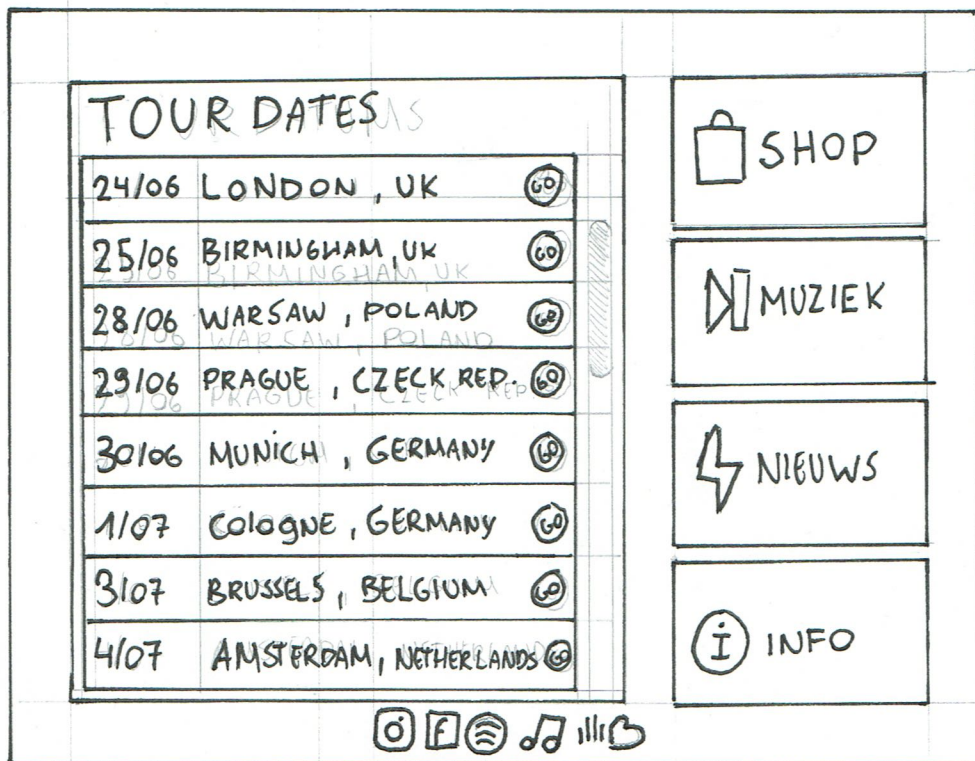 TOUR DATES
24/06 LONDON , UK GO
25/06 BIRMINGHAM, UK GO
28/06 WARSAW , POLAND GO
29/06 PRAGUE , CZECK REP. GO
30/06 MUNICH , GERMANY GO
1/07 Cologne, GERMANY GO
3/07 BRUSSELS, BELGIUM GO
4/07 AMSTERDAM, NETHERLANDS GO
SHOP
MUZIEK
NIEUWS
i INFO